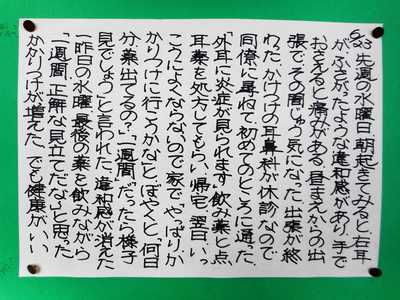 6/23 先週の水曜日、朝起きてみると、右耳
がふさがったような違和感があり、手で
おさえると痛みがある。昼まぢからの出
張で、その間じゅう気になった。出張が終
わた、かけつけの耳鼻科が休診なので
同僚に尋ねて、初めてのところに通った。
「外耳に炎症が見られます」飲み薬と点
耳薬を処方してもらい、帰宅。翌日、いっ
こうによくならないので、家で「やっぱりか
かりつけに行こうかな」とぼやくと、「何日
分、薬出てるの?」「一週間」「だったら様子
見でしょう」と言われた。違和感が消えた
一昨日の水曜、最後の薬を飲みながら
「一週間、正解な見立てだな」と思った
かかりつけが増えた。でも健康がいい